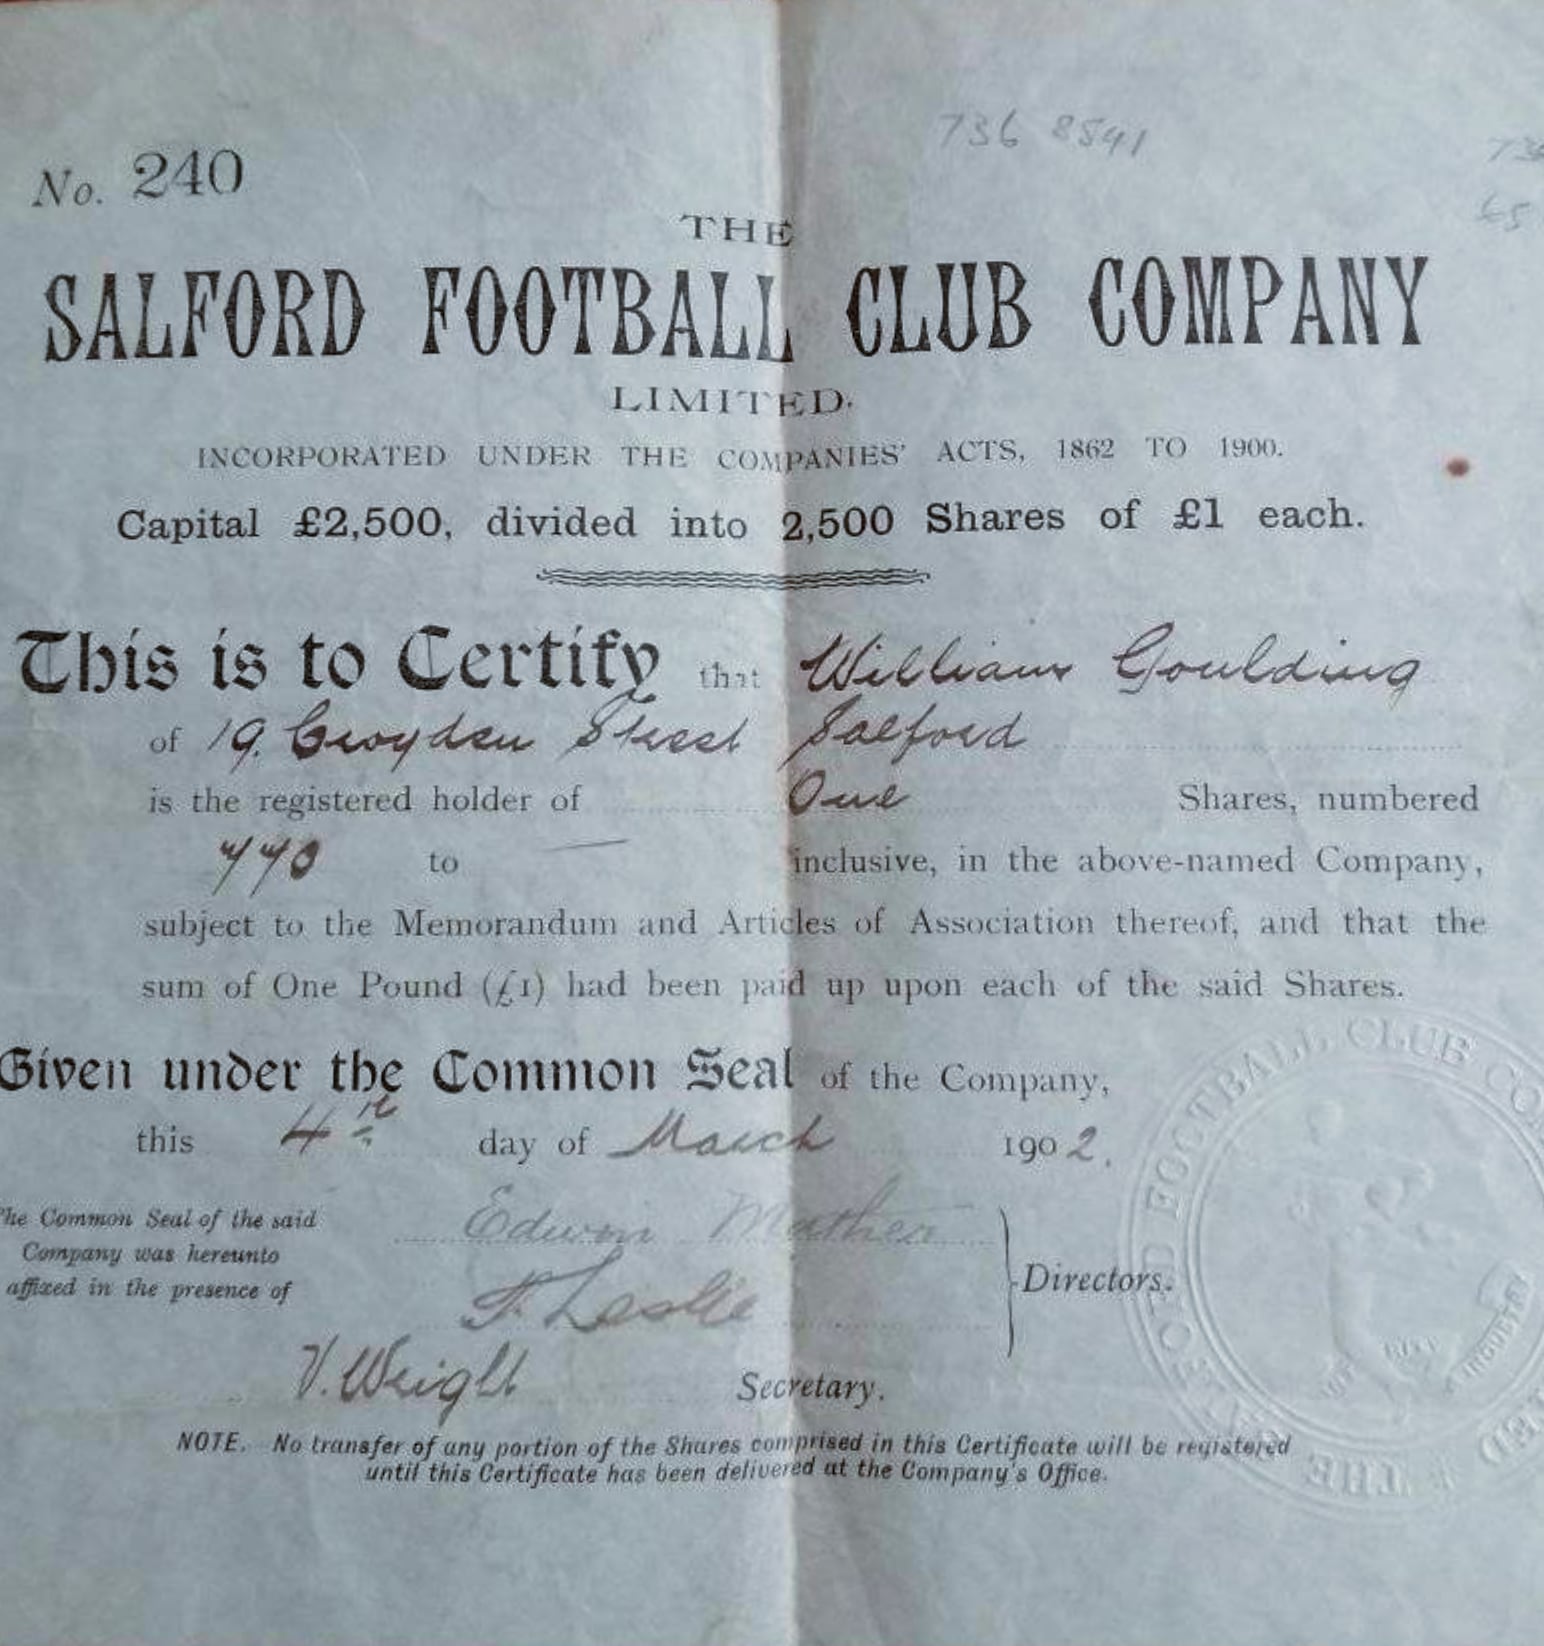 736 8541
No. 240
THE
SALFORD FOOTBALL CLUB COMPANY
LIMITED.
INCORPORATED UNDER THE COMPANIES' ACTS, 1862 TO 1900.
Capital £2,500, divided into 2,500 Shares of £1 each.
This is to Certify that William Goulding
of 19. Croyden Street Salford
is the registered holder of One Shares, numbered
770 to — inclusive, in the above-named Company,
subject to the Memorandum and Articles of Association thereof, and that the
sum of One Pound (£1) had been paid up upon each of the said Shares.
Given under the Common Seal of the Company,
this 4th day of March 1902.
The Common Seal of the said
Company was hereunto
affixed in the presence of
Edwin Mather
F. Leslie
Directors.
V. Wright Secretary.
NOTE. No transfer of any portion of the Shares comprised in this Certificate will be registered
until this Certificate has been delivered at the Company's Office.
THE SALFORD FOOTBALL CLUB
INDUSTRY